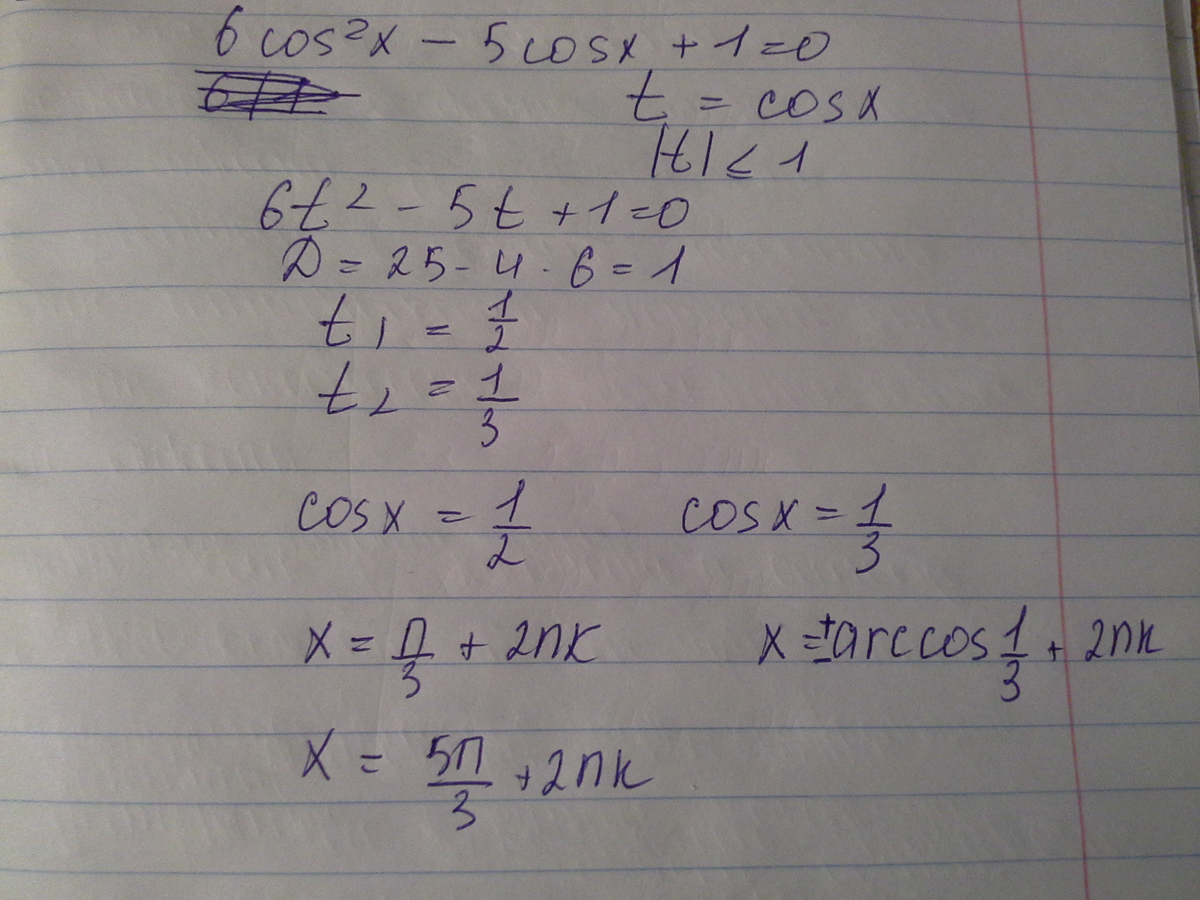 6 cos²x − 5 cosx + 1 = 0
t = cosx
|t| ≤ 1
6t² − 5t + 1 = 0
D = 25 − 4 · 6 = 1
t₁ = 1/2
t₂ = 1/3
cosx = 1/2 cosx = 1/3
x = π/3 + 2πк x = ± arccos 1/3 + 2πк
x = 5π/3 + 2πк